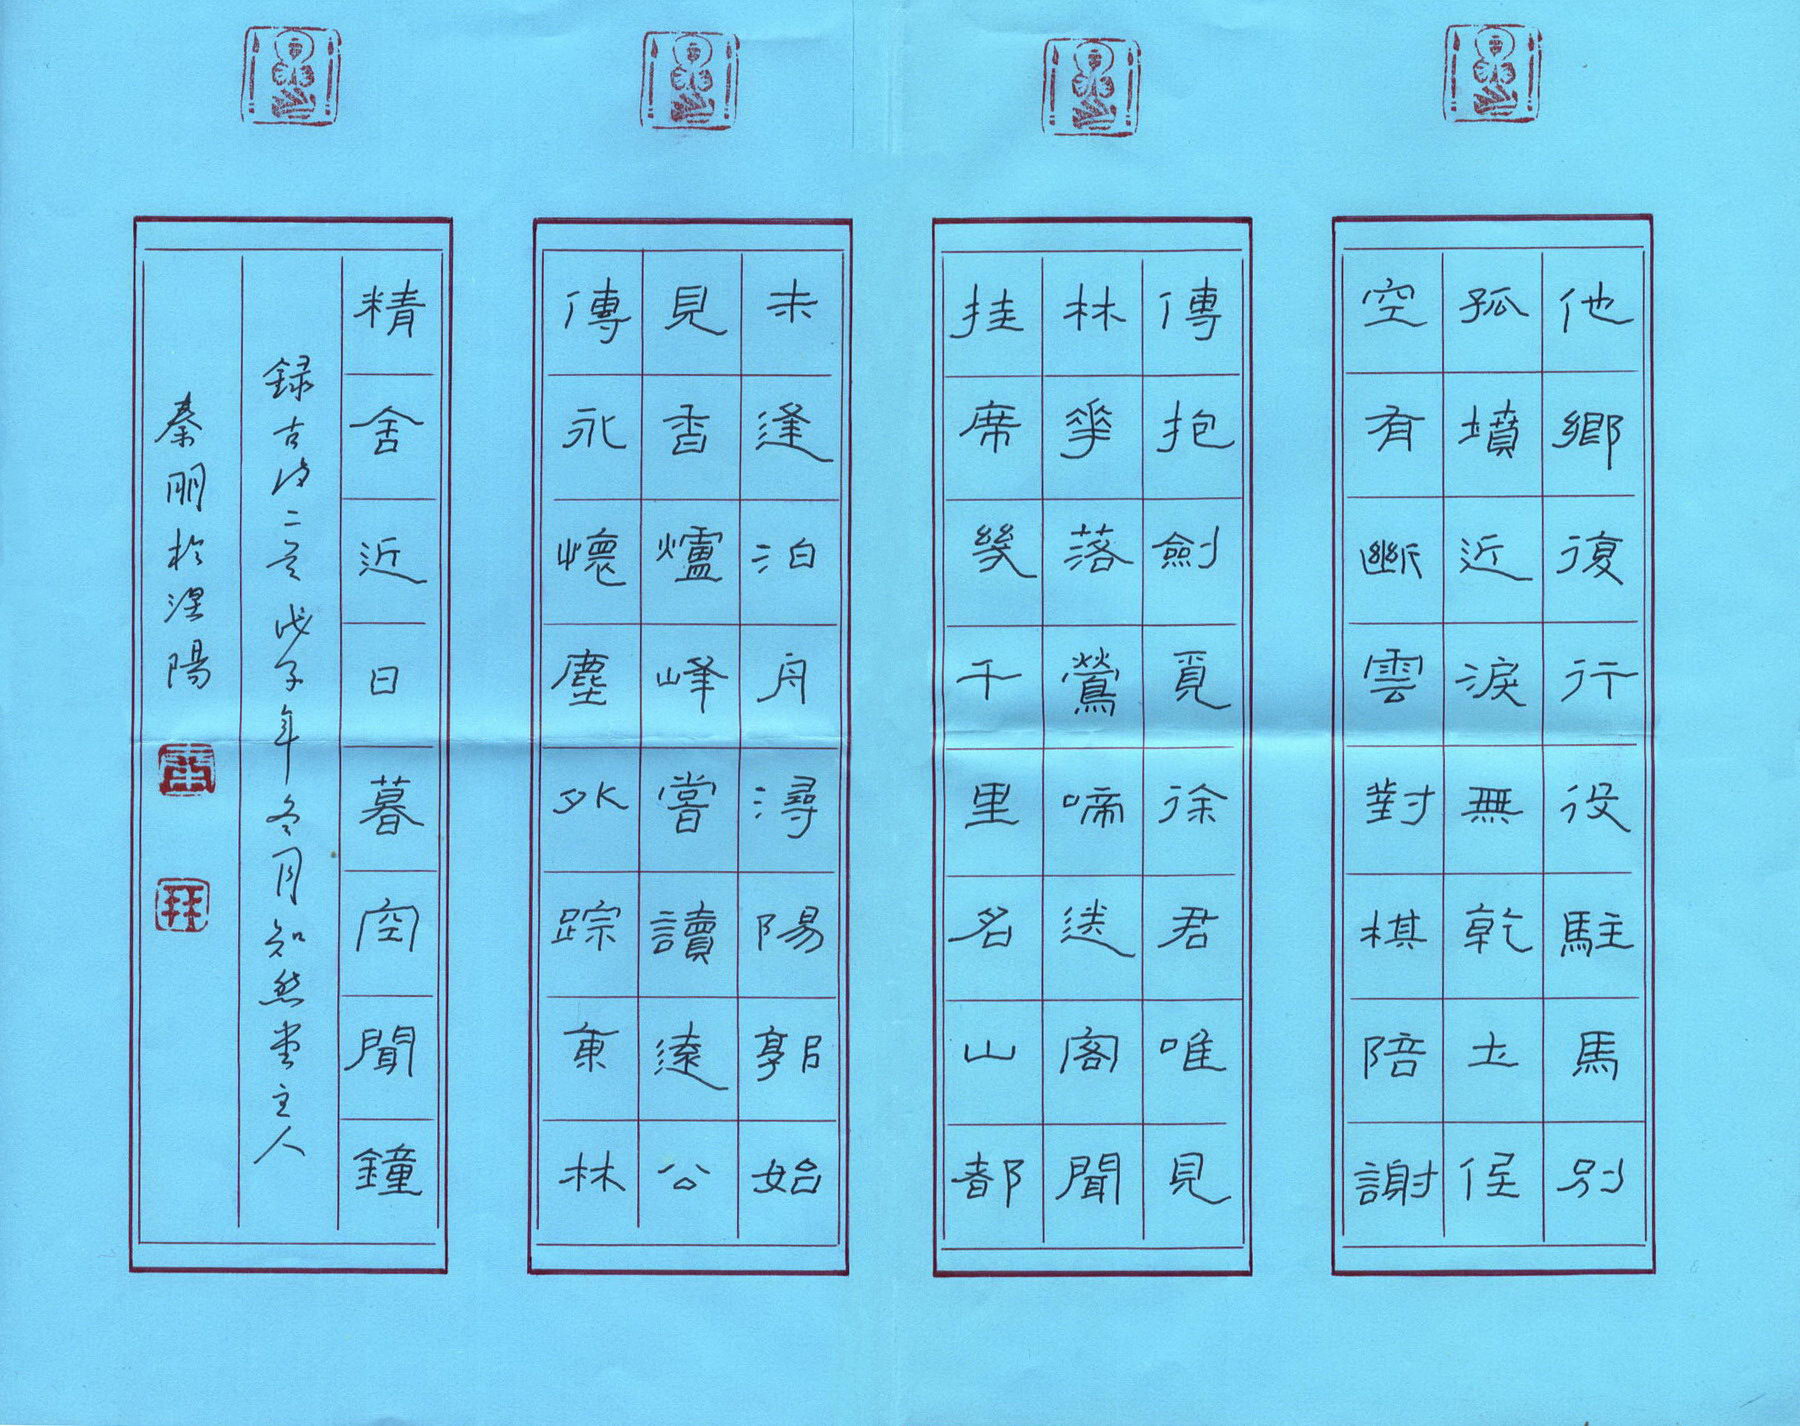 他鄉復行役駐馬別
孤墳近淚無乾土低
空有斷雲對棋陪謝
傅抱劍覓徐君唯見
林華落鶯啼送客聞
挂席幾千里名山都
未逢泊舟潯陽郭始
見香爐峰嘗讀遠公
傳永懷塵外踪東林
精舍近日暮空聞鐘
録古詩二首 戊子年冬月知然堂主人
秦朋於涅陽